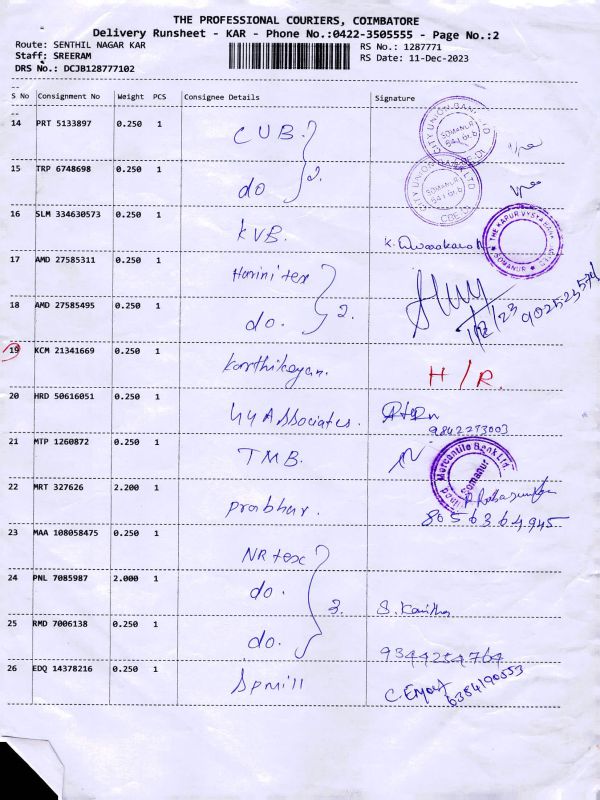 THE PROFESSIONAL COURIERS, COIMBATORE
Delivery Runsheet - KAR - Phone No.:0422-3505555 - Page No.:2
Route: SENTHIL NAGAR KAR
Staff: SREERAM
DRS No.: DCJB128777102
RS No.: 1287771
RS Date: 11-Dec-2023
S No Consignment No Weight PCS Consignee Details Signature
14 PRT 5133897 0.250 1 CUB. } 2.
CITY UNION BANK LTD SOMANUR
15 TRP 6748698 0.250 1 do
CITY UNION BANK LTD SOMANUR
16 SLM 334630573 0.250 1 KVB. K.
THE KARUR VYSYA BANK SOMANUR
17 AMD 27585311 0.250 1 Harini tex } 2.
18 AMD 27585495 0.250 1 do.
19 KCM 21341669 0.250 1 Karthikeyan. H/R.
20 HRD 50616051 0.250 1 44 Associates. 9842273003
21 MTP 1260872 0.250 1 TMB.
Mercantile Bank Ltd. Somanur
22 MRT 327626 2.200 1 Prabhu. 8056364945
23 MAA 108058475 0.250 1 NR tex } 3.
24 PNL 7085987 2.000 1 do. S. Kavitha
25 RMD 7006138 0.250 1 do. 9344254764
26 EDQ 14378216 0.250 1 Spmill 6384190553